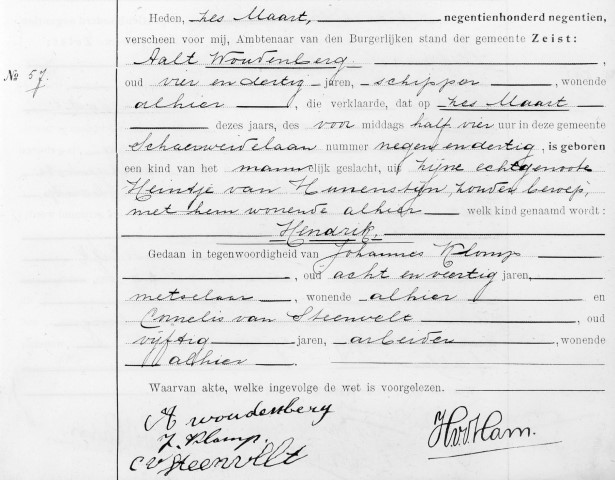 Heden, zes Maart, negentienhonderd negentien,
verscheen voor mij, Ambtenaar van den Burgerlijken stand der gemeente Zeist:
Aalt Woudenberg
No 57. oud vier en dertig jaren, schipper, wonende
alhier, die verklaarde, dat op zes Maart
dezes jaars, des voor middags half vier uur in deze gemeente
Schaerweidelaan nummer negen en dertig, is geboren
een kind van het mannelijk geslacht, uit zijne echtgenoote
Heintje van Hunenstijn, zonder beroep,
met hem wonende alhier welk kind genaamd wordt:
Hendrik,
Gedaan in tegenwoordigheid van Johannes Klomp
, oud acht en veertig jaren,
metselaar, wonende alhier en
Cornelis van Steenvelt, oud
vijftig jaren, arbeider, wonende
alhier.
Waarvan akte, welke ingevolge de wet is voorgelezen.
A woudenberg
J. Klomp.
C v Steenvelt
HvdHam.